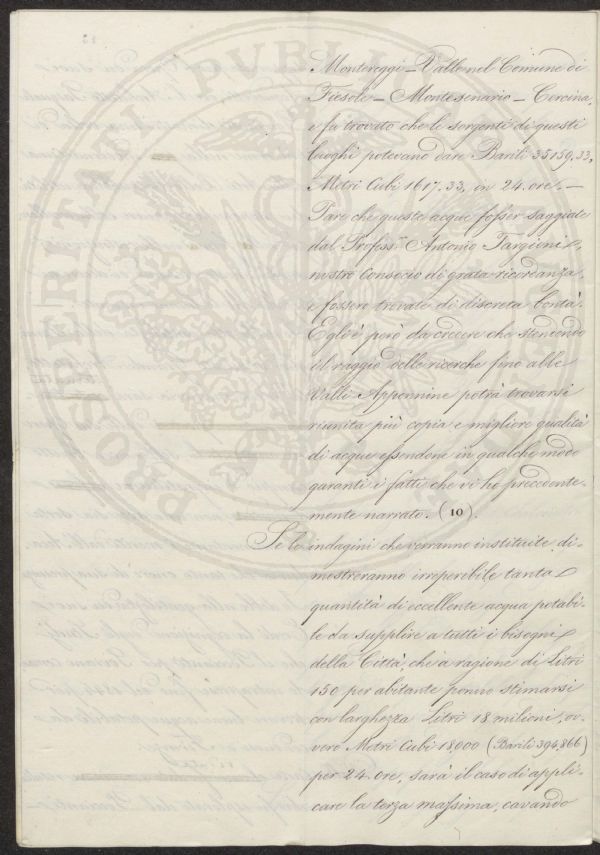 Montereggi – Valle nel Comune di
Fiesole – Montesenario – Cercina,
e fu trovato che le sorgenti di questi
luoghi potevano dare Barili 35159,33,
Metri Cubi 1617.33, in 24. ore. –
Pare che queste acque fosser saggiate
dal Profess.re Antonio Targioni,
nostro Consocio di grata ricordanza,
e fossero trovate di discreta bontà.
Egli è però da credere che stendendo
il raggio delle ricerche fino alle
Valli Appennine potrà trovarsi
riunita più copia e migliore qualità
di acque essendone in qualche modo
garanti i fatti che vi ho precedente-
mente narrato. (10).
Se le indagini che verranno instituite di-
mostreranno irreperibile tanta
quantità di eccellente acqua potabi-
le da supplire a tutti i bisogni
della Città, che a ragione di Litri
150 per abitante ponno stimarsi
con larghezza Litri 18 milioni, ov-
vero Metri Cubi 18,000 (Barili 394,866)
per 24. ore, sarà il caso di appli-
care la terza massima, cavando
PROSPERITATI PVBLICAE